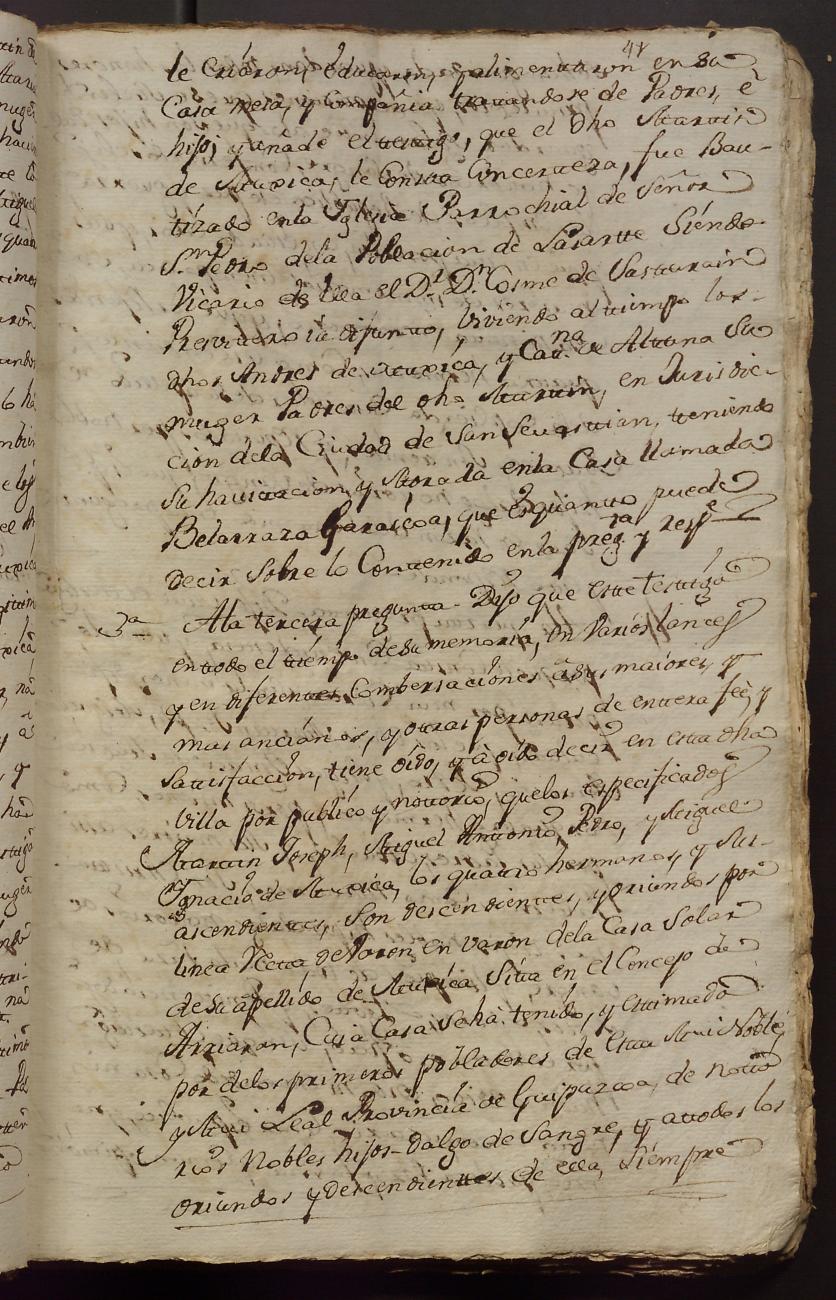 41
le criaron, educaron, y alimentaron en su
Casa mesa, y Compañia tratandose de Padres, è
hijo; y añade el testigo, que el dho Martin
de Mugica, le Consta Concerteza, fue Bau-
tizado enla Yglesia Parrochial de Señor
Sn. Pedro dela Poblacion de Lasarte Siendo
Vicario de ella el Dr. Dn. Cosme de Sasturain
Presvitero ia difunto, viviendo al tiempo los
dhos Andres de Mugica, y Cat.na de Altuna Su
muger Padres del dho Martin, en Jurisdic-
cion dela Ciudad de San Sevastian, teniendo
Su havitacion y Morada enla Casa llamada
Belarraza Garaicoa, que es quanto puede
decir Sobre lo Contenido enla preg.ta y resp.de
3.a Ala tercera pregunta Dijo que este testigo
entodo el tiempo de su memoria, en varios lances
y en diferentes Combersaciones asus maiores, y
mas ancianos, y otras personas de entera feè, y
Satisfaccion, tiene oido, y à oido decir en esta dha
Villa por publico y notorio, quelos especificados
Martin Joseph, Miguel Antonio, Pedro, y Miguel
Ygnacio de Mugica, los quatro hermanos, y Sus
ascendientes, Son descendientes, y oriundos por
linea Recta, de Varon en varon dela Casa Solar
de Su apellido de Mugica Sita en el Concejo de
Arriaran, Cuia Casa Seha tenido, y estimado
por delos primeros pobladores de esta Mui Noble,
y Mui Leal Provincia de Guipuzcoa, de noto
rios Nobles hijos-dalgo de Sangre, y atodos los
oriundos y descendientes de ella, Siempre